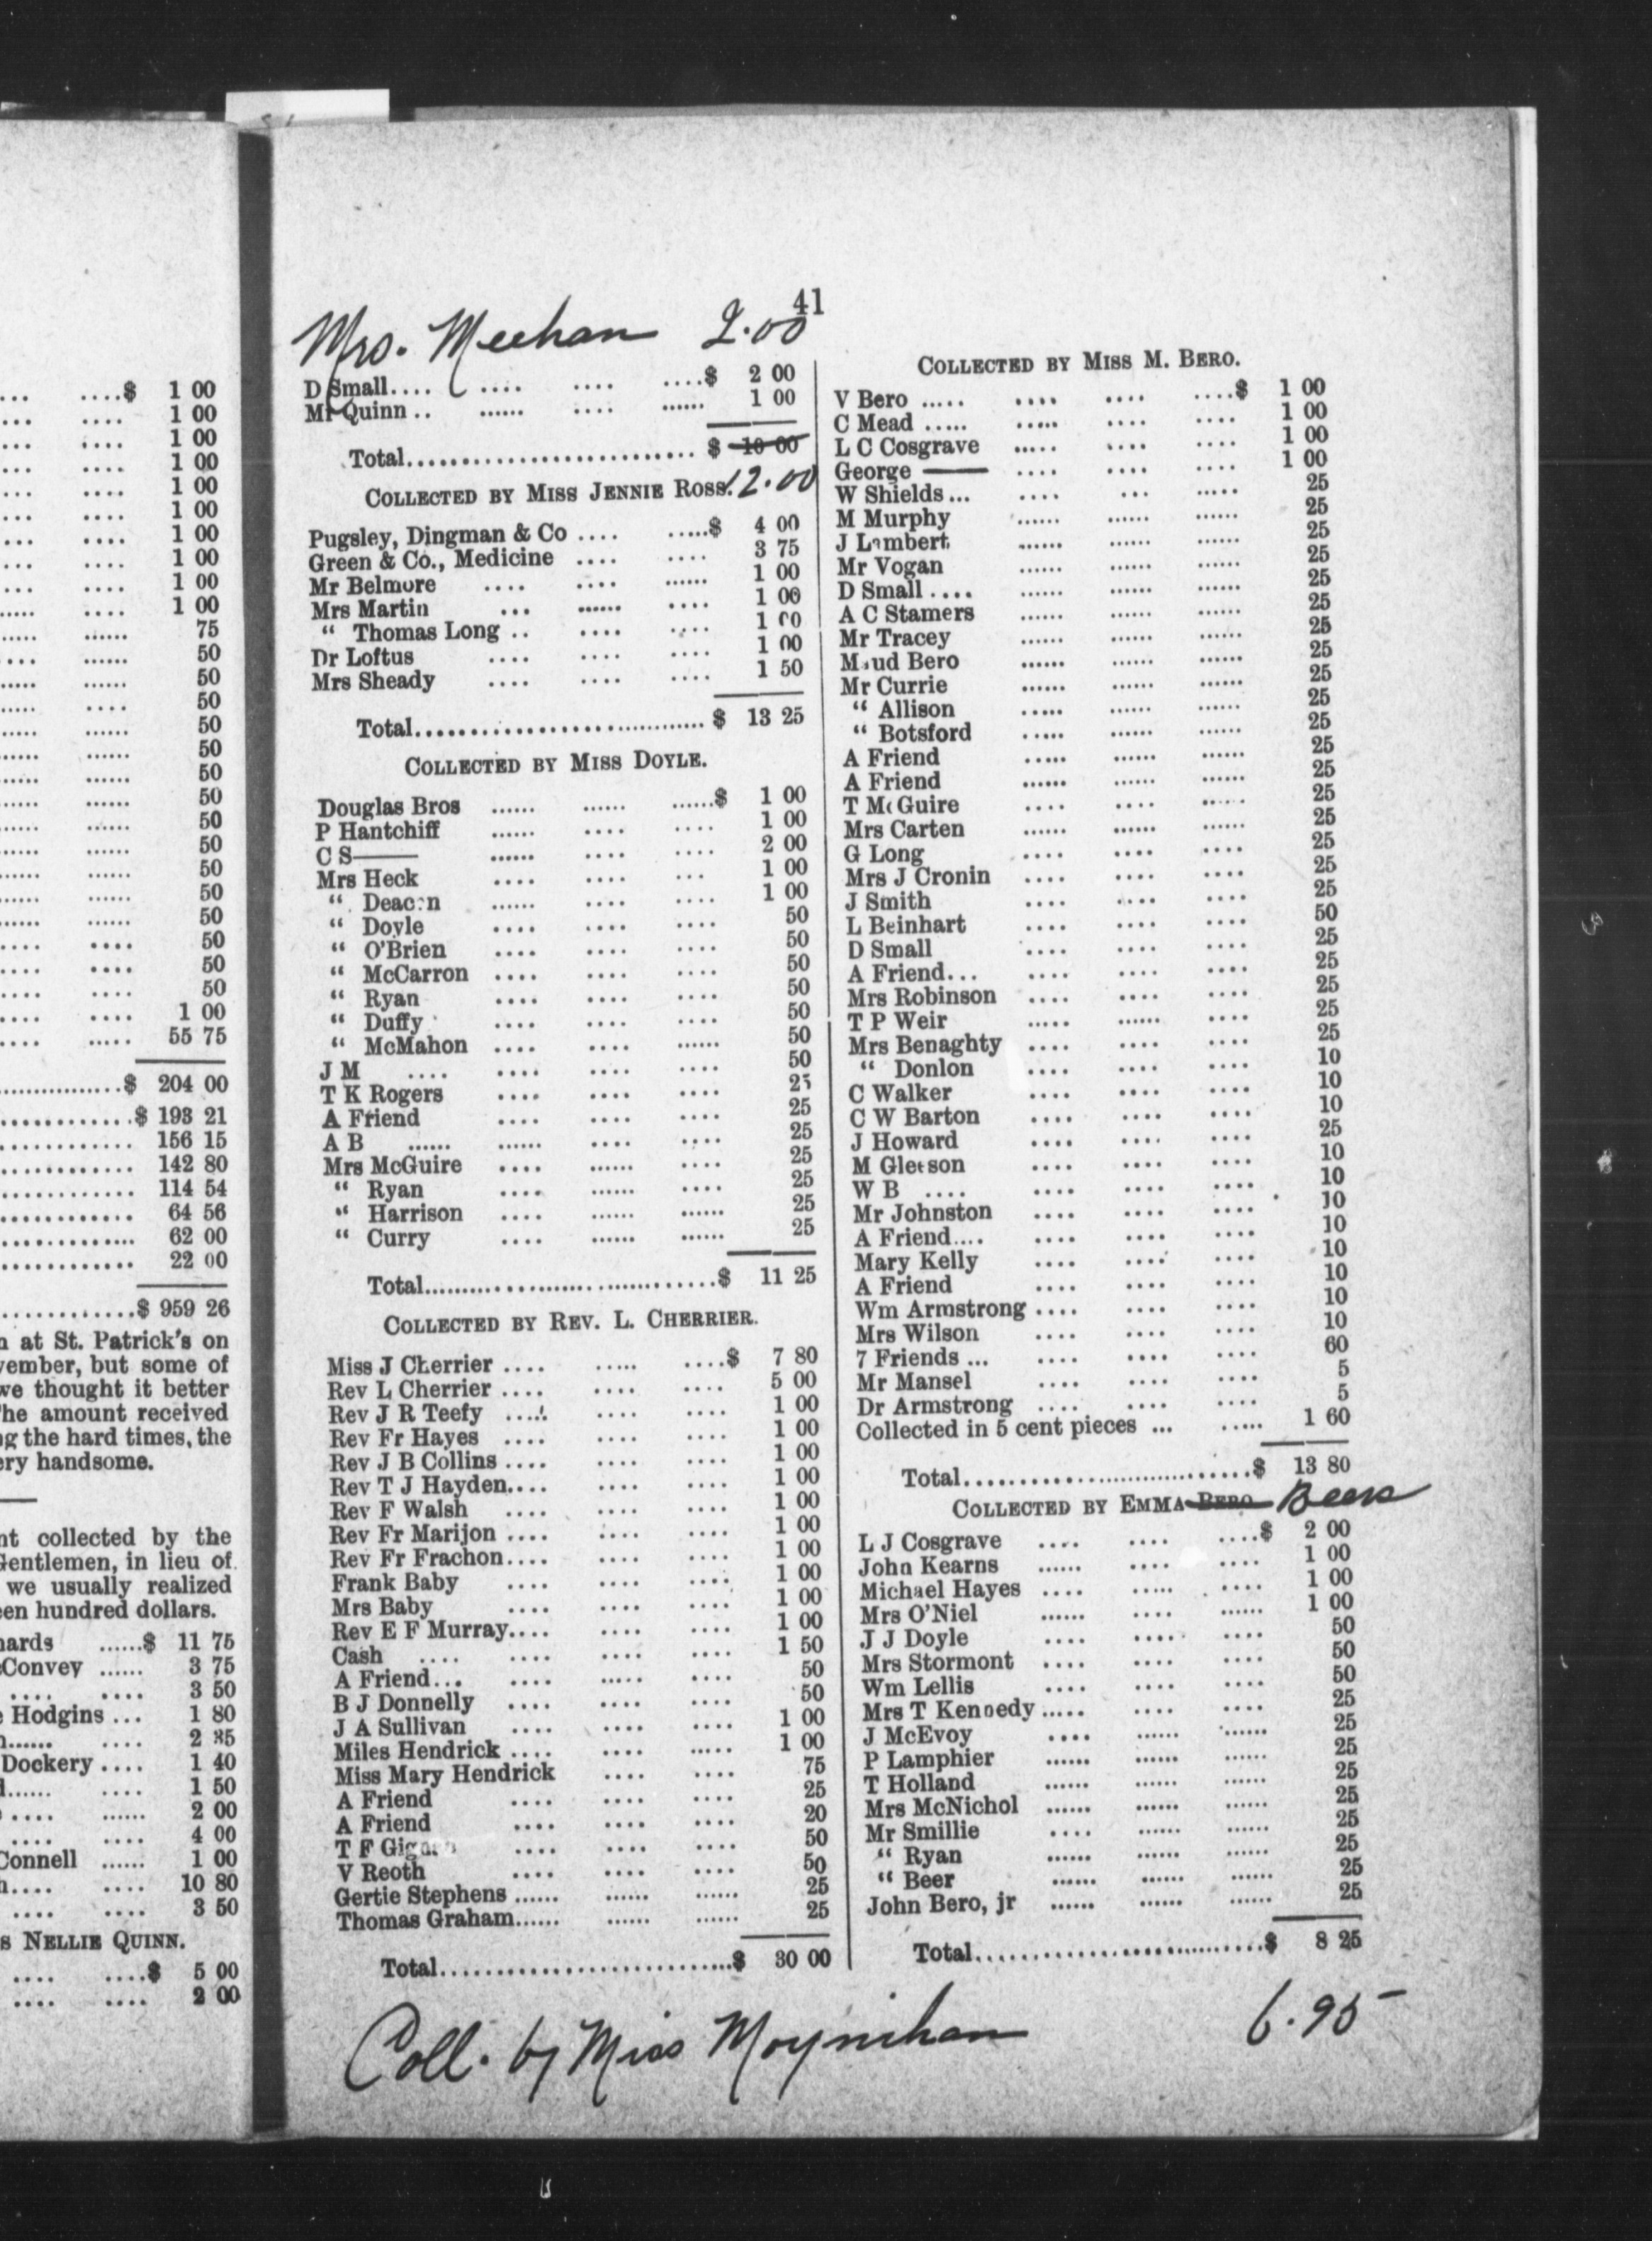 .... ....$ 1 00
.... .... 1 00
.... .... 1 00
.... .... 1 00
.... .... 1 00
.... .... 1 00
.... .... 1 00
.... .... 1 00
.... .... 1 00
..... .... 1 00
..... ...... 75
.... ...... 50
..... ...... 50
..... .... 50
..... ...... 50
..... ...... 50
..... ...... 50
..... ...... 50
..... ...... 50
..... ...... 50
..... ...... 50
..... ...... 50
..... ...... 50
.... .... 50
.... .... 50
.... .... 50
.... .... 1 00
.... ..... 55 75
..............$ 204 00
.............$ 193 21
............. 156 15
............. 142 80
............. 114 54
............. 64 56
............. 62 00
............. 22 00
.............$ 959 26
n at St. Patrick's on
vember, but some of
we thought it better
The amount received
ng the hard times, the
ery handsome.
nt collected by the
Gentlemen, in lieu of
we usually realized
een hundred dollars.
hards ......$ 11 75
cConvey ...... 3 75
.... .... 3 50
e Hodgins ... 1 80
n...... .... 2 35
Dockery .... 1 40
d...... .... 1 50
.... ...... 2 00
.... .... 4 00
Connell ...... 1 00
h.... .... 10 80
.... .... 3 50
S NELLIE QUINN.
.... ....$ 5 00
.... .... 2 00
41
Mrs. Meehan 2.00
D Small.... .... .... ....$ 2 00
Mr Quinn .. ...... .... ...... 1 00
Total............................ $ 10 00
12.00
COLLECTED BY MISS JENNIE ROSS.
Pugsley, Dingman & Co .... .....$ 4 00
Green & Co., Medicine .... .... 3 75
Mr Belmore .... .... ...... 1 00
Mrs Martin ... ...... .... 1 00
“ Thomas Long .. .... .... 1 00
Dr Loftus .... .... .... 1 00
Mrs Sheady .... .... .... 1 50
Total............................ $ 13 25
COLLECTED BY MISS DOYLE.
Douglas Bros ...... ...... ......$ 1 00
P Hantchiff ...... .... .... 1 00
C S—— ...... .... .... 2 00
Mrs Heck .... .... ... 1 00
“ Deacon ...... .... .... 1 00
“ Doyle .... .... .... 50
“ O'Brien .... .... .... 50
“ McCarron .... .... .... 50
“ Ryan .... .... .... 50
“ Duffy .... .... .... 50
“ McMahon .... .... ...... 50
J M .... .... .... .... 50
T K Rogers .... .... .... 25
A Friend .... .... .... 25
A B ...... ...... .... .... 25
Mrs McGuire .... ...... .... 25
“ Ryan .... ...... .... 25
“ Harrison .... ...... ...... 25
“ Curry .... ...... ...... 25
Total............................$ 11 25
COLLECTED BY REV. L. CHERRIER.
Miss J Cherrier .... ..... ....$ 7 80
Rev L Cherrier .... .... .... 5 00
Rev J R Teefy .... .... .... 1 00
Rev Fr Hayes .... .... .... 1 00
Rev J B Collins .... .... .... 1 00
Rev T J Hayden.... .... .... 1 00
Rev F Walsh .... .... .... 1 00
Rev Fr Marijon .... .... .... 1 00
Rev Fr Frachon.... .... .... 1 00
Frank Baby .... .... .... 1 00
Mrs Baby .... .... .... 1 00
Rev E F Murray.... .... .... 1 00
Cash .... .... .... .... 1 50
A Friend... .... ..... .... 50
B J Donnelly .... .... .... 50
J A Sullivan .... .... .... 1 00
Miles Hendrick .... .... ..... 1 00
Miss Mary Hendrick .... .... 75
A Friend .... .... .... 25
A Friend .... .... .... 20
T F .... .... .... 50
V Reoth .... .... .... 50
Gertie Stephens ...... ...... ...... 25
Thomas Graham...... ...... ...... 25
Total............................$ 30 00
COLLECTED BY MISS M. BERO.
V Bero ..... .... .... ....$ 1 00
C Mead ..... ..... .... .... 1 00
L C Cosgrave ..... .... .... 1 00
George —— .... .... .... 1 00
W Shields... .... ... ..... 25
M Murphy ...... ...... ...... 25
J Lambert ...... ...... ...... 25
Mr Vogan ...... ...... ...... 25
D Small .... ...... ...... ...... 25
A C Stamers ...... ...... ...... 25
Mr Tracey ...... ...... ...... 25
Maud Bero ...... ...... ...... 25
Mr Currie ...... ...... ...... 25
“ Allison ..... ...... ...... 25
“ Botsford ..... ...... ...... 25
A Friend ..... ...... ...... 25
A Friend ...... ...... ...... 25
T McGuire .... .... ..... 25
Mrs Carten ...... ...... ...... 25
G Long .... .... .... 25
Mrs J Cronin .... .... .... 25
J Smith .... .... .... 25
L Beinhart .... .... .... 50
D Small .... .... .... 25
A Friend... .... .... .... 25
Mrs Robinson .... .... .... 25
T P Weir ..... ...... .... 25
Mrs Benaghty .... .... .... 25
“ Donlon .... .... .... 10
C Walker .... .... .... 10
C W Barton .... .... .... 10
J Howard .... .... .... 25
M Gleeson .... .... .... 10
W B .... .... .... .... 10
Mr Johnston .... .... .... 10
A Friend.... .... .... .... 10
Mary Kelly .... .... .... 10
A Friend .... .... .... 10
Wm Armstrong .... .... .... 10
Mrs Wilson .... .... .... 10
7 Friends ... .... .... .... 60
Mr Mansel .... .... .... 5
Dr Armstrong .... .... .... 5
Collected in 5 cent pieces ... ..... 1 60
Total............................$ 13 80
COLLECTED BY EMMA BERO Beers
L J Cosgrave .... .... ....$ 2 00
John Kearns ...... .... .... 1 00
Michael Hayes .... ..... .... 1 00
Mrs O'Niel ...... .... ...... 1 00
J J Doyle .... .... .... 50
Mrs Stormont .... .... .... 50
Wm Lellis .... .... .... 50
Mrs T Kennedy ..... .... .... 25
J McEvoy .... ...... ...... 25
P Lamphier ...... ...... ...... 25
T Holland ...... ...... ...... 25
Mrs McNichol ...... ...... ...... 25
Mr Smillie .... ...... ...... 25
“ Ryan ...... ...... ...... 25
“ Beer ...... ...... ...... 25
John Bero, jr ...... ...... ...... 25
Total............................$ 8 25
Coll. by Miss Moynihan 6.95